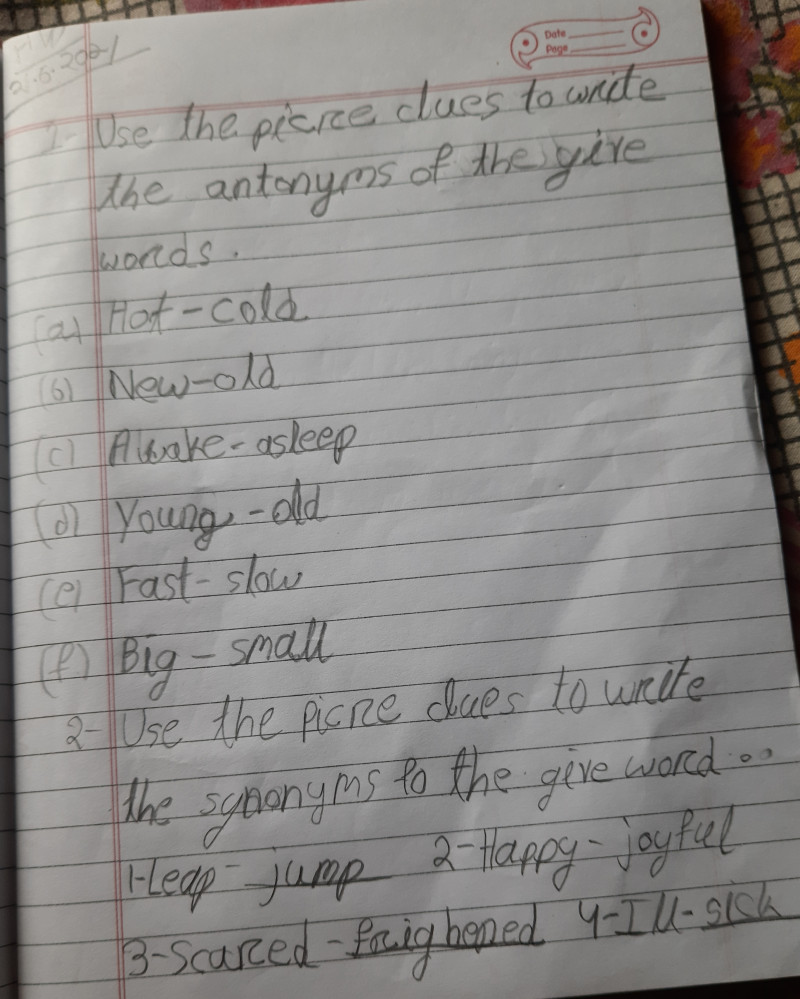 H.W
21.6.2021
Date
Page
1- Use the picree clues to write
the antonyms of the give
words.
(a) Hot-cold
(b) New-old
(c) Awake-asleep
(d) Young-old
(e) Fast-slow
(f) Big-small
2- Use the picre clues to write
the synonyms to the give word..
1-Leap-jump 2-Happy-joyful
3-Scared-frighened 4-Ill-sick